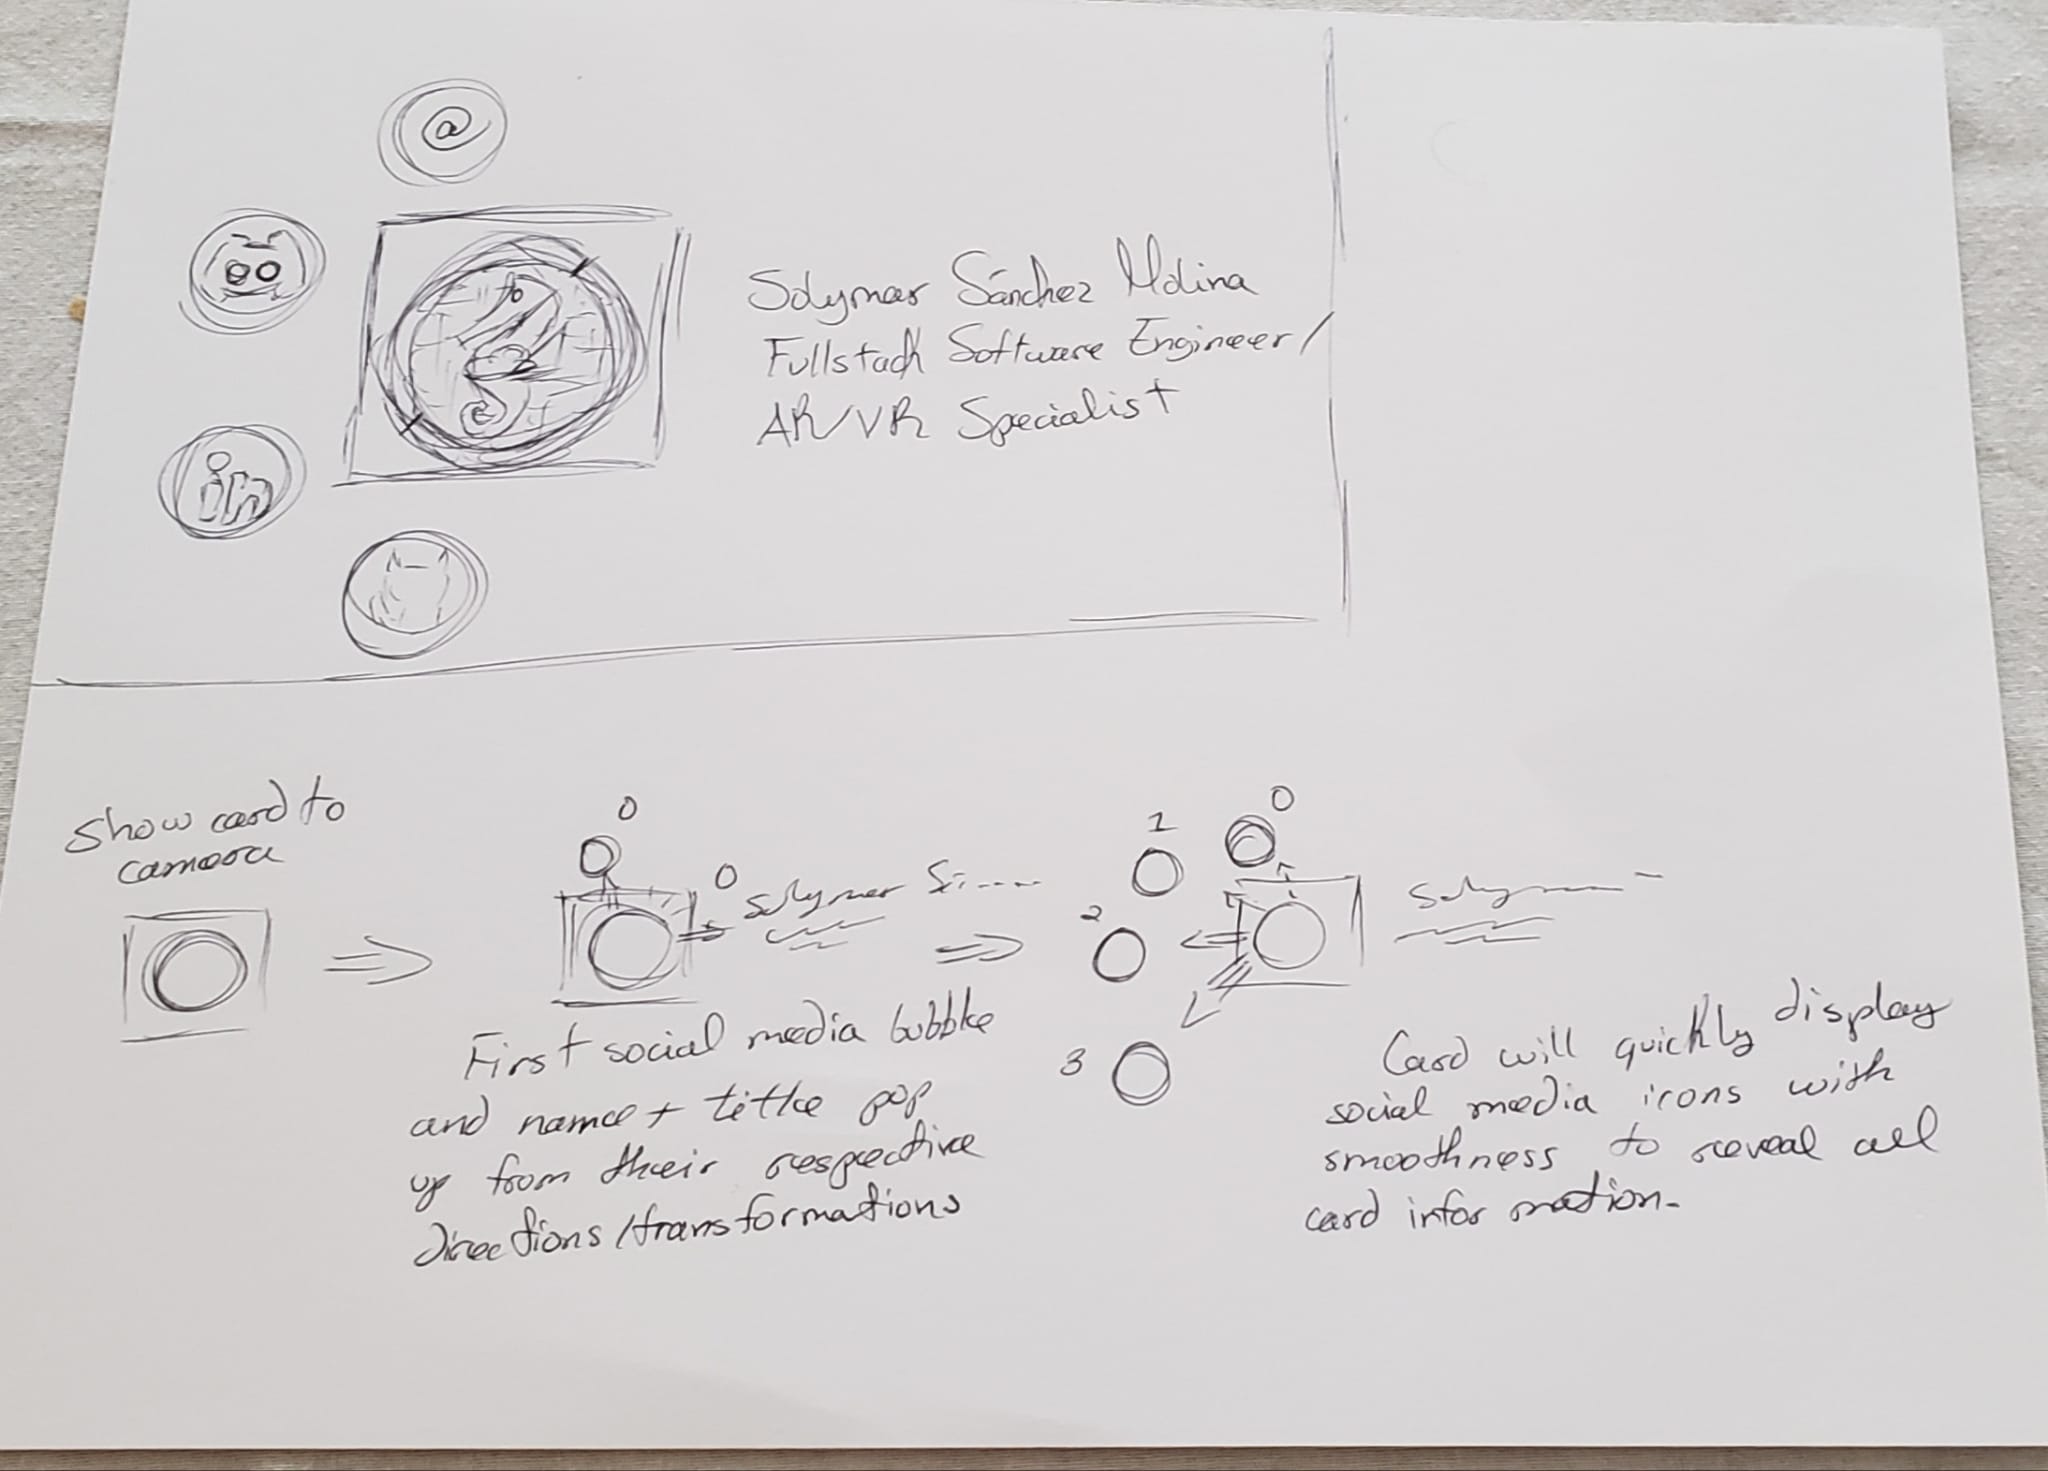 @
in
Solymar Sánchez Molina
Fullstack Software Engineer/
AR/VR Specialist
Show card to
camera
0
0
Solymar S.....
First social media bubble
and name + title pop
up from their respective
directions/transformations
0
1
2
3
Solym
Card will quickly display
social media icons with
smoothness to reveal all
card information.